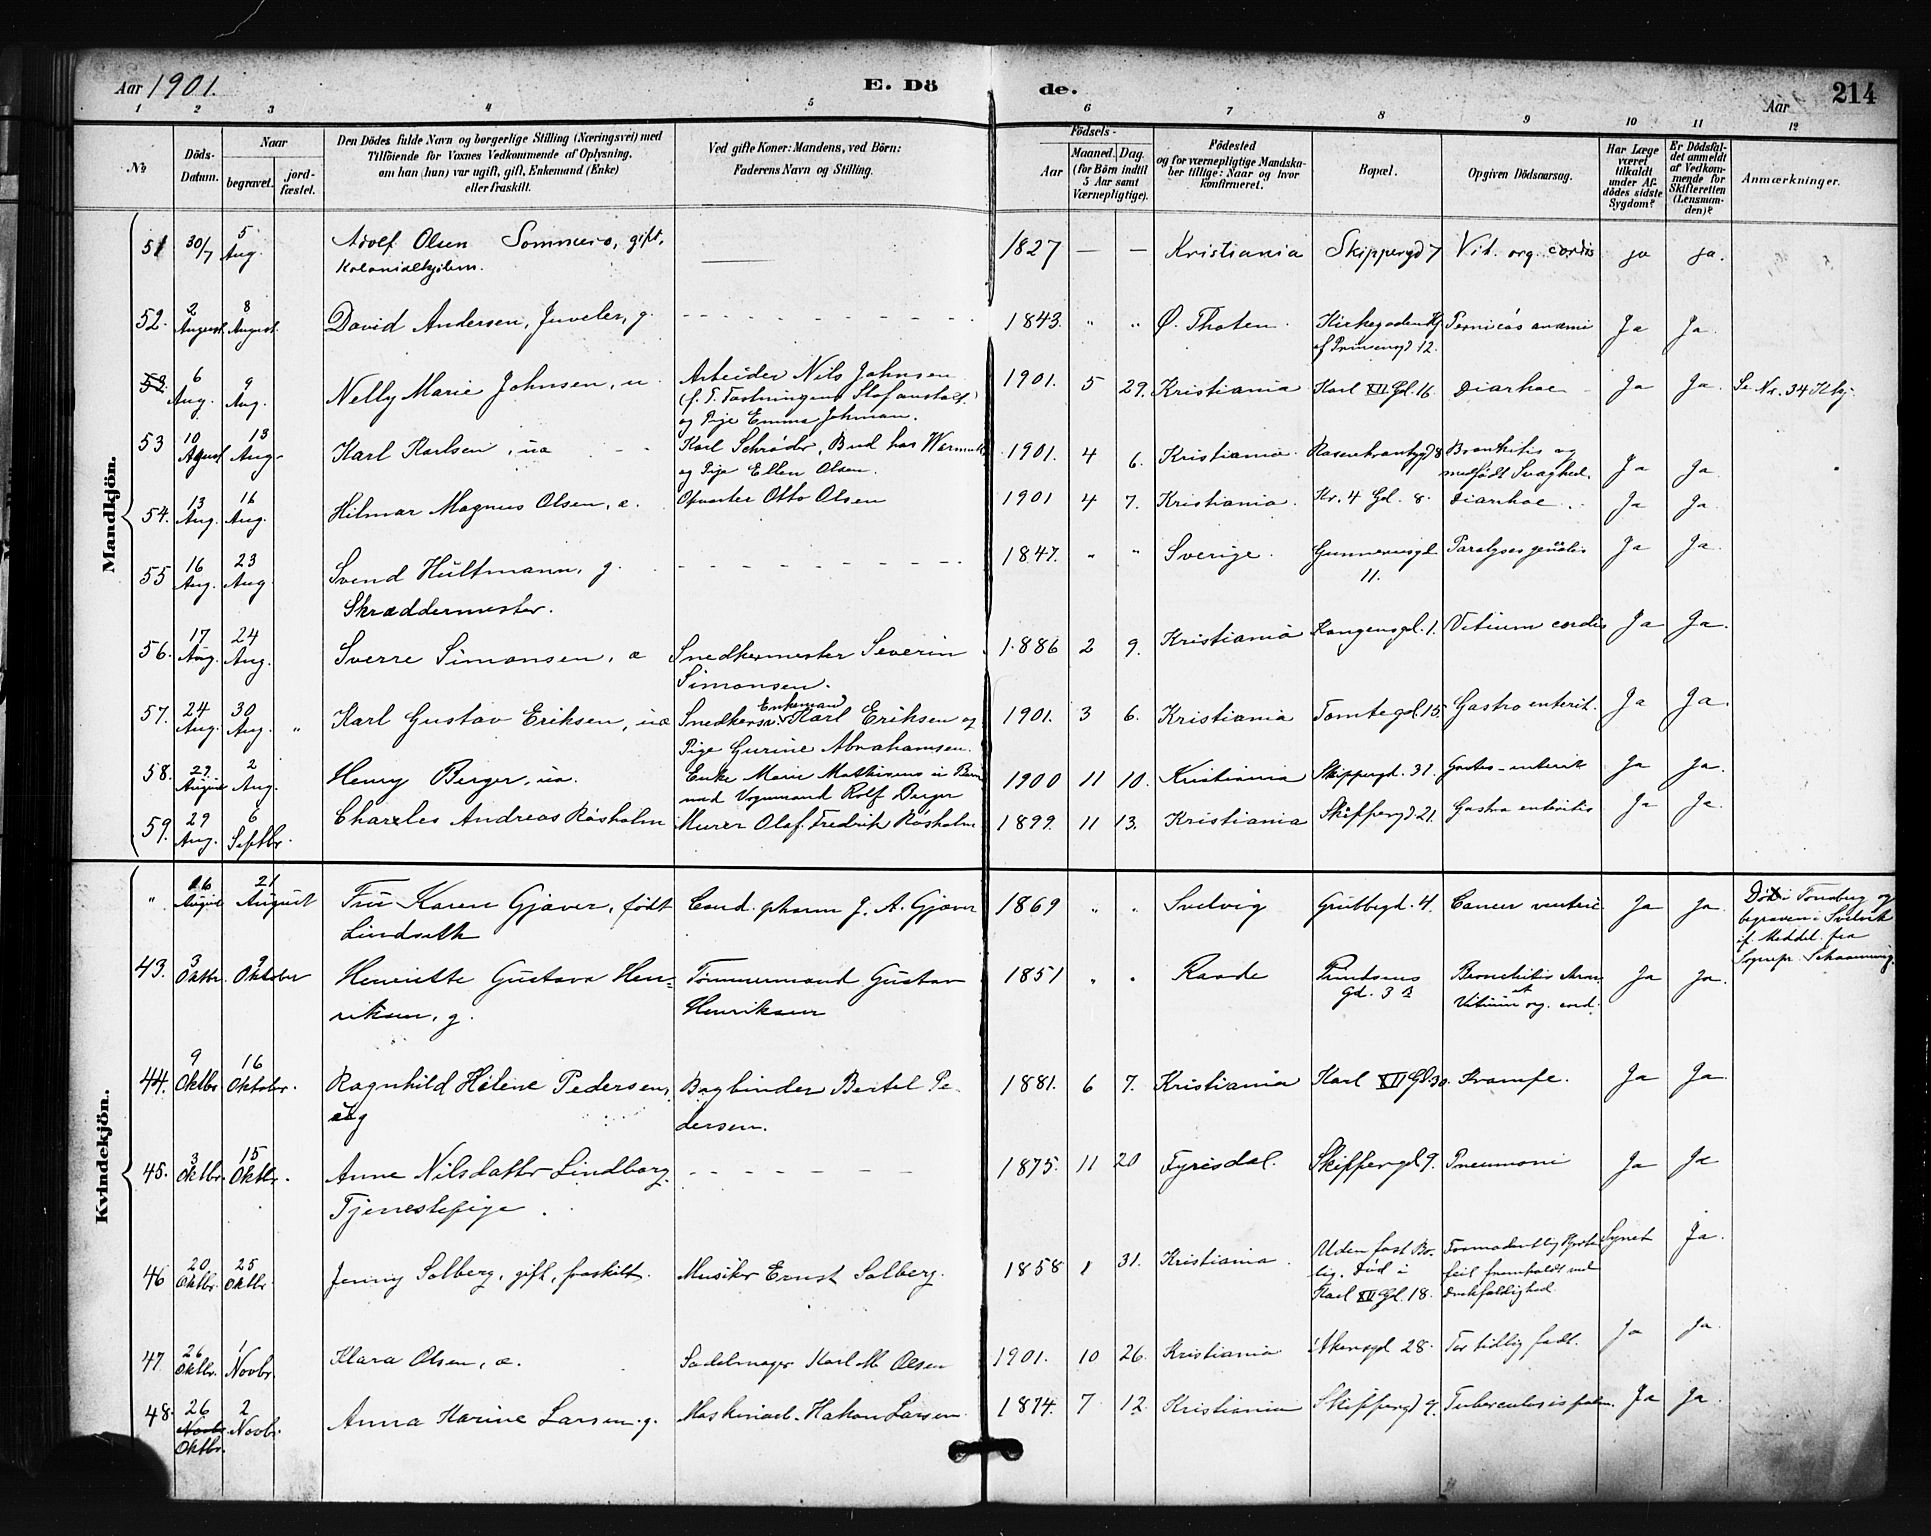 Aar 1901. E. Dö de. Aar 214
1 2 3 4 5 6 7 8 9 10 11 12
No Döds-Datum. Naar begravet. jord-fæstet.
Den Dödes fulde Navn og borgerlige Stilling (Næringsvei) med
Tilföiende for Voxnes Vedkommende af Oplysning,
om han (hun) var ugift, gift, Enkemand (Enke)
eller fraskilt.
Ved gifte Koner: Mandens, ved Börn:
Faderens Navn og Stilling.
Födsels-
Aar Maaned. Dag.
(for Börn indtil
5 Aar samt
Værnepligtige).
Födested
og for værnepligtige Mandska-
ber tillige: Naar og hvor
konfirmeret.
Bopæl.
Opgiven Dödsaarsag.
Har Læge
været
tilkaldt
under Af-
dödes sidste
Sygdom?
Er Dödsfal-
det anmeldt
af Vedkom-
mende for
Skifteretten
(Lensman-
den)?
Anmærkninger.
Mandkjön.
51 30/7 5 Aug. Adolf Olsen Sommero, gift, —— 1827 — — Kristiania Skippergd 7 Vit. org. cordis ja ja.
52. 2 August 8 August. David Andersen, Juveler, g. - - - 1843. " " Ø. Thoten. Kirkegaden Hj Perniciøs anæmi Ja Ja.
af Prinsensgd 12.
52 6 Aug. 9 Aug. Nelly Marie Johnsen, u. Arbeider Nils Johnsen 1901. 5 29. Kristiania Karl XII Gd. 16. Diarhoe Ja Ja. Se Nr. 34 Kkj.
og Pige Emma Johman.
53 10 August 13 Aug. Karl Karlsen, ua Karl Schrøder, Bud hos 1901. 4 6. Kristiania. Rosenkrantzgd 8 Bronkitis og Ja Ja.
og Pige Ellen Olsen. medfødt Svaghed.
54. 13 Aug. 16 Aug. Hilmar Magnus Olsen, æ. Opvarter Otto Olsen 1901 4 7. Kristiania. Kr. 4 Gd. 8. Diarrhoe. Ja Ja.
55 16 Aug. 23 Aug Svend Hultmann, g. - - - 1847. " " Sverige. Gunnerusgd. Ja Ja.
Skræddermester. 11.
56. 17 Aug. 24 Aug. Sverre Simonsen, æ Snedkermester Severin 1886 2 9. Kristiania Kongensgd. 1. Vitium cordis Ja Ja.
Simonsen.
57. 24 Aug. 30 Aug. " Karl Gustav Eriksen, uæ Snedkersv. Enkemand Karl Eriksen og 1901. 3 6. Kristiania Tomtegd. 15. Gastro enterit. Ja Ja.
Pige Gurine Abrahamsen.
58. 2 Aug. Henry Berger, ua. Enke Marie 1900 11 10. Kristiania Skippergd. 31. Ja Ja.
med Vognmand Rolf Berger
59. 29 Aug. 6 Septbr. Charles Andreas Røsholm Murer Olaf Fredrik Røsholm 1899. 11 13. Kristiania Skippergd. 21. Gastro enteritis Ja Ja.
Kvindekjön.
" 16 August 21 August Fru Karen Gjæver, født Cand. pharm J. A. Gjæver 1869 " " Svelvig Grubbegd. 4. Cancer ventric Ja Ja. Død i Tønsberg og
begraven i Svelvik
if. Meddel. fra
Sognepr. Schaanning.
43. 3 Oktbr. 9 Oktober Henriette Gustava Hen- Tømmermand Gustav 1851 " " Raade Gd. 3 B Bronchitis chron. Ja Ja.
riksen, g. Henriksen et Vitium org. cord.
44. 9 Oktbr 16 Oktober. Ragnhild Helene Pedersen, Bogbinder Bertel Pe- 1881. 6 7. Kristiania Karl XII Gd 30. Krampe. Ja Ja.
ug dersen.
45. 3 Oktbr. 15 Oktbr. Anne Nilsdatter Lindborg. - - - 1875. 11 20 Fyrisdal. Skippergd 9. Pneumoni Ja Ja
Tjenestepige.
46 20 Oktbr. 25 Oktbr. Jenny Solberg, gift, fraskilt. Musiker Ernst Solberg. 1858 1 31. Kristiania. Uden fast Bo- Formodentlig Hjerte- Synet Ja.
lig. Død i feil fremholdt ved
Karl XII Gd. 18. Drukfældighed.
47. 26 Oktbr. 1 Novbr. Klara Olsen, æ. Sadelmager Karl M. Olsen 1901. 10 26. Kristiania Akersgd 28. For tidlig født. Ja Ja.
48. 26 Novbr Oktbr. 2 Novbr. Anna Karine Larsen. g. Maskinarb. Hakon Larsen 1874. 7 12. Kristiania Skippergd 9. Tuberculosis pulm. Ja Ja.